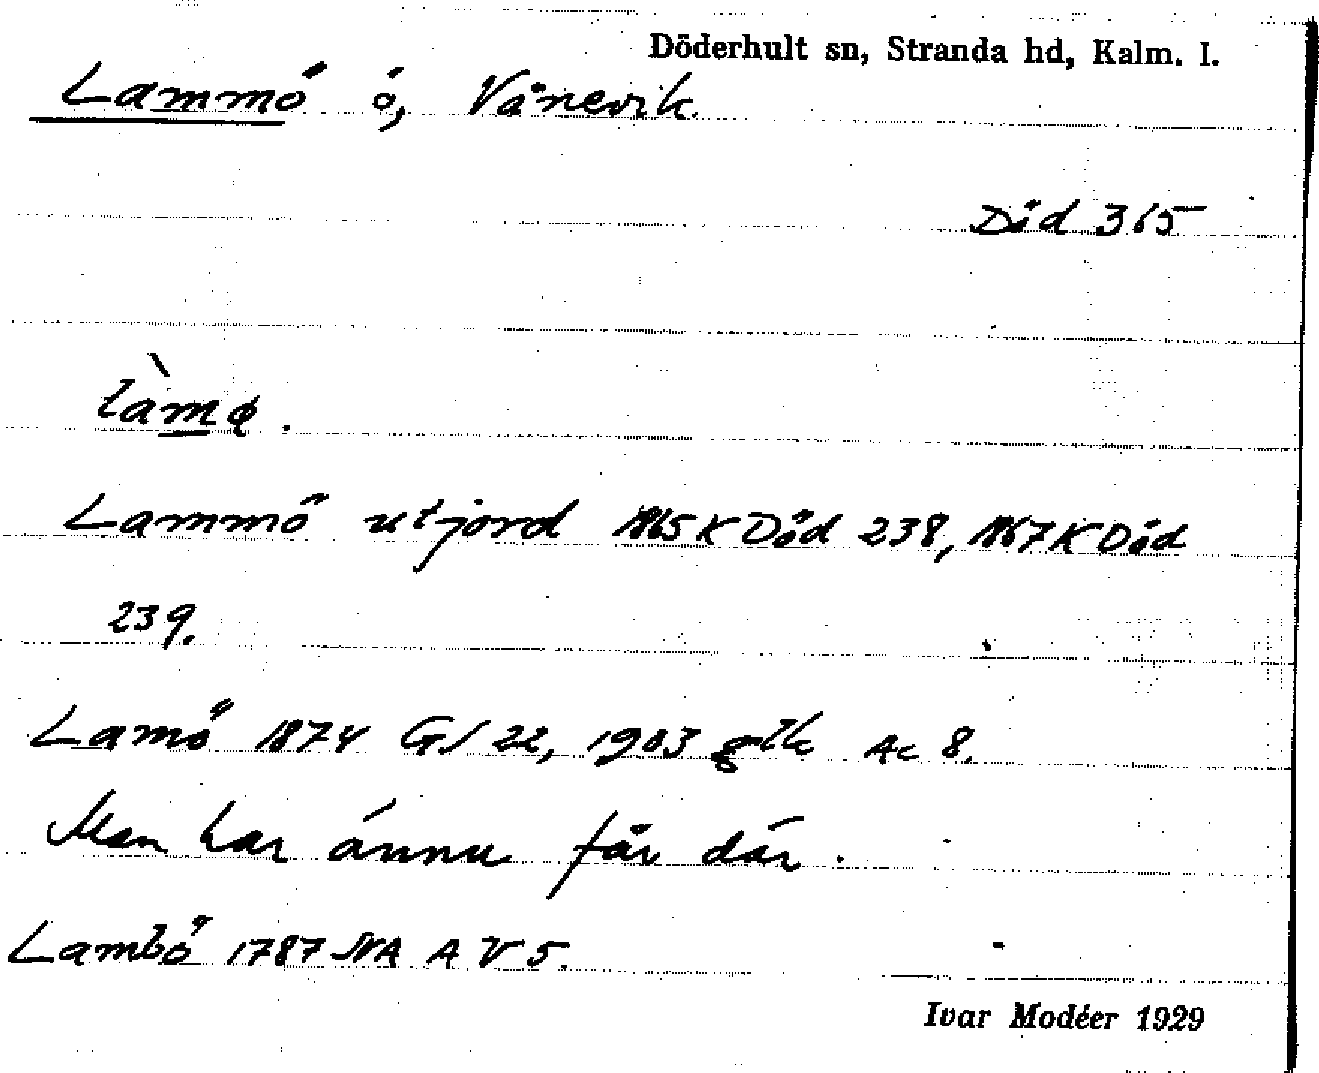 Döderhult sn, Stranda hd, Kalm. l.
Lammö ö, Vånevik.
Död 365
làmø.
Lammö utjord 1865 K Död 238, 1867 K Död
239.
Lamö 1874 GS 22, 1903 glk Ac 8.
Man har ännu får där.
Lambö 1787 NA A V 5.
Ivar Modéer 1929